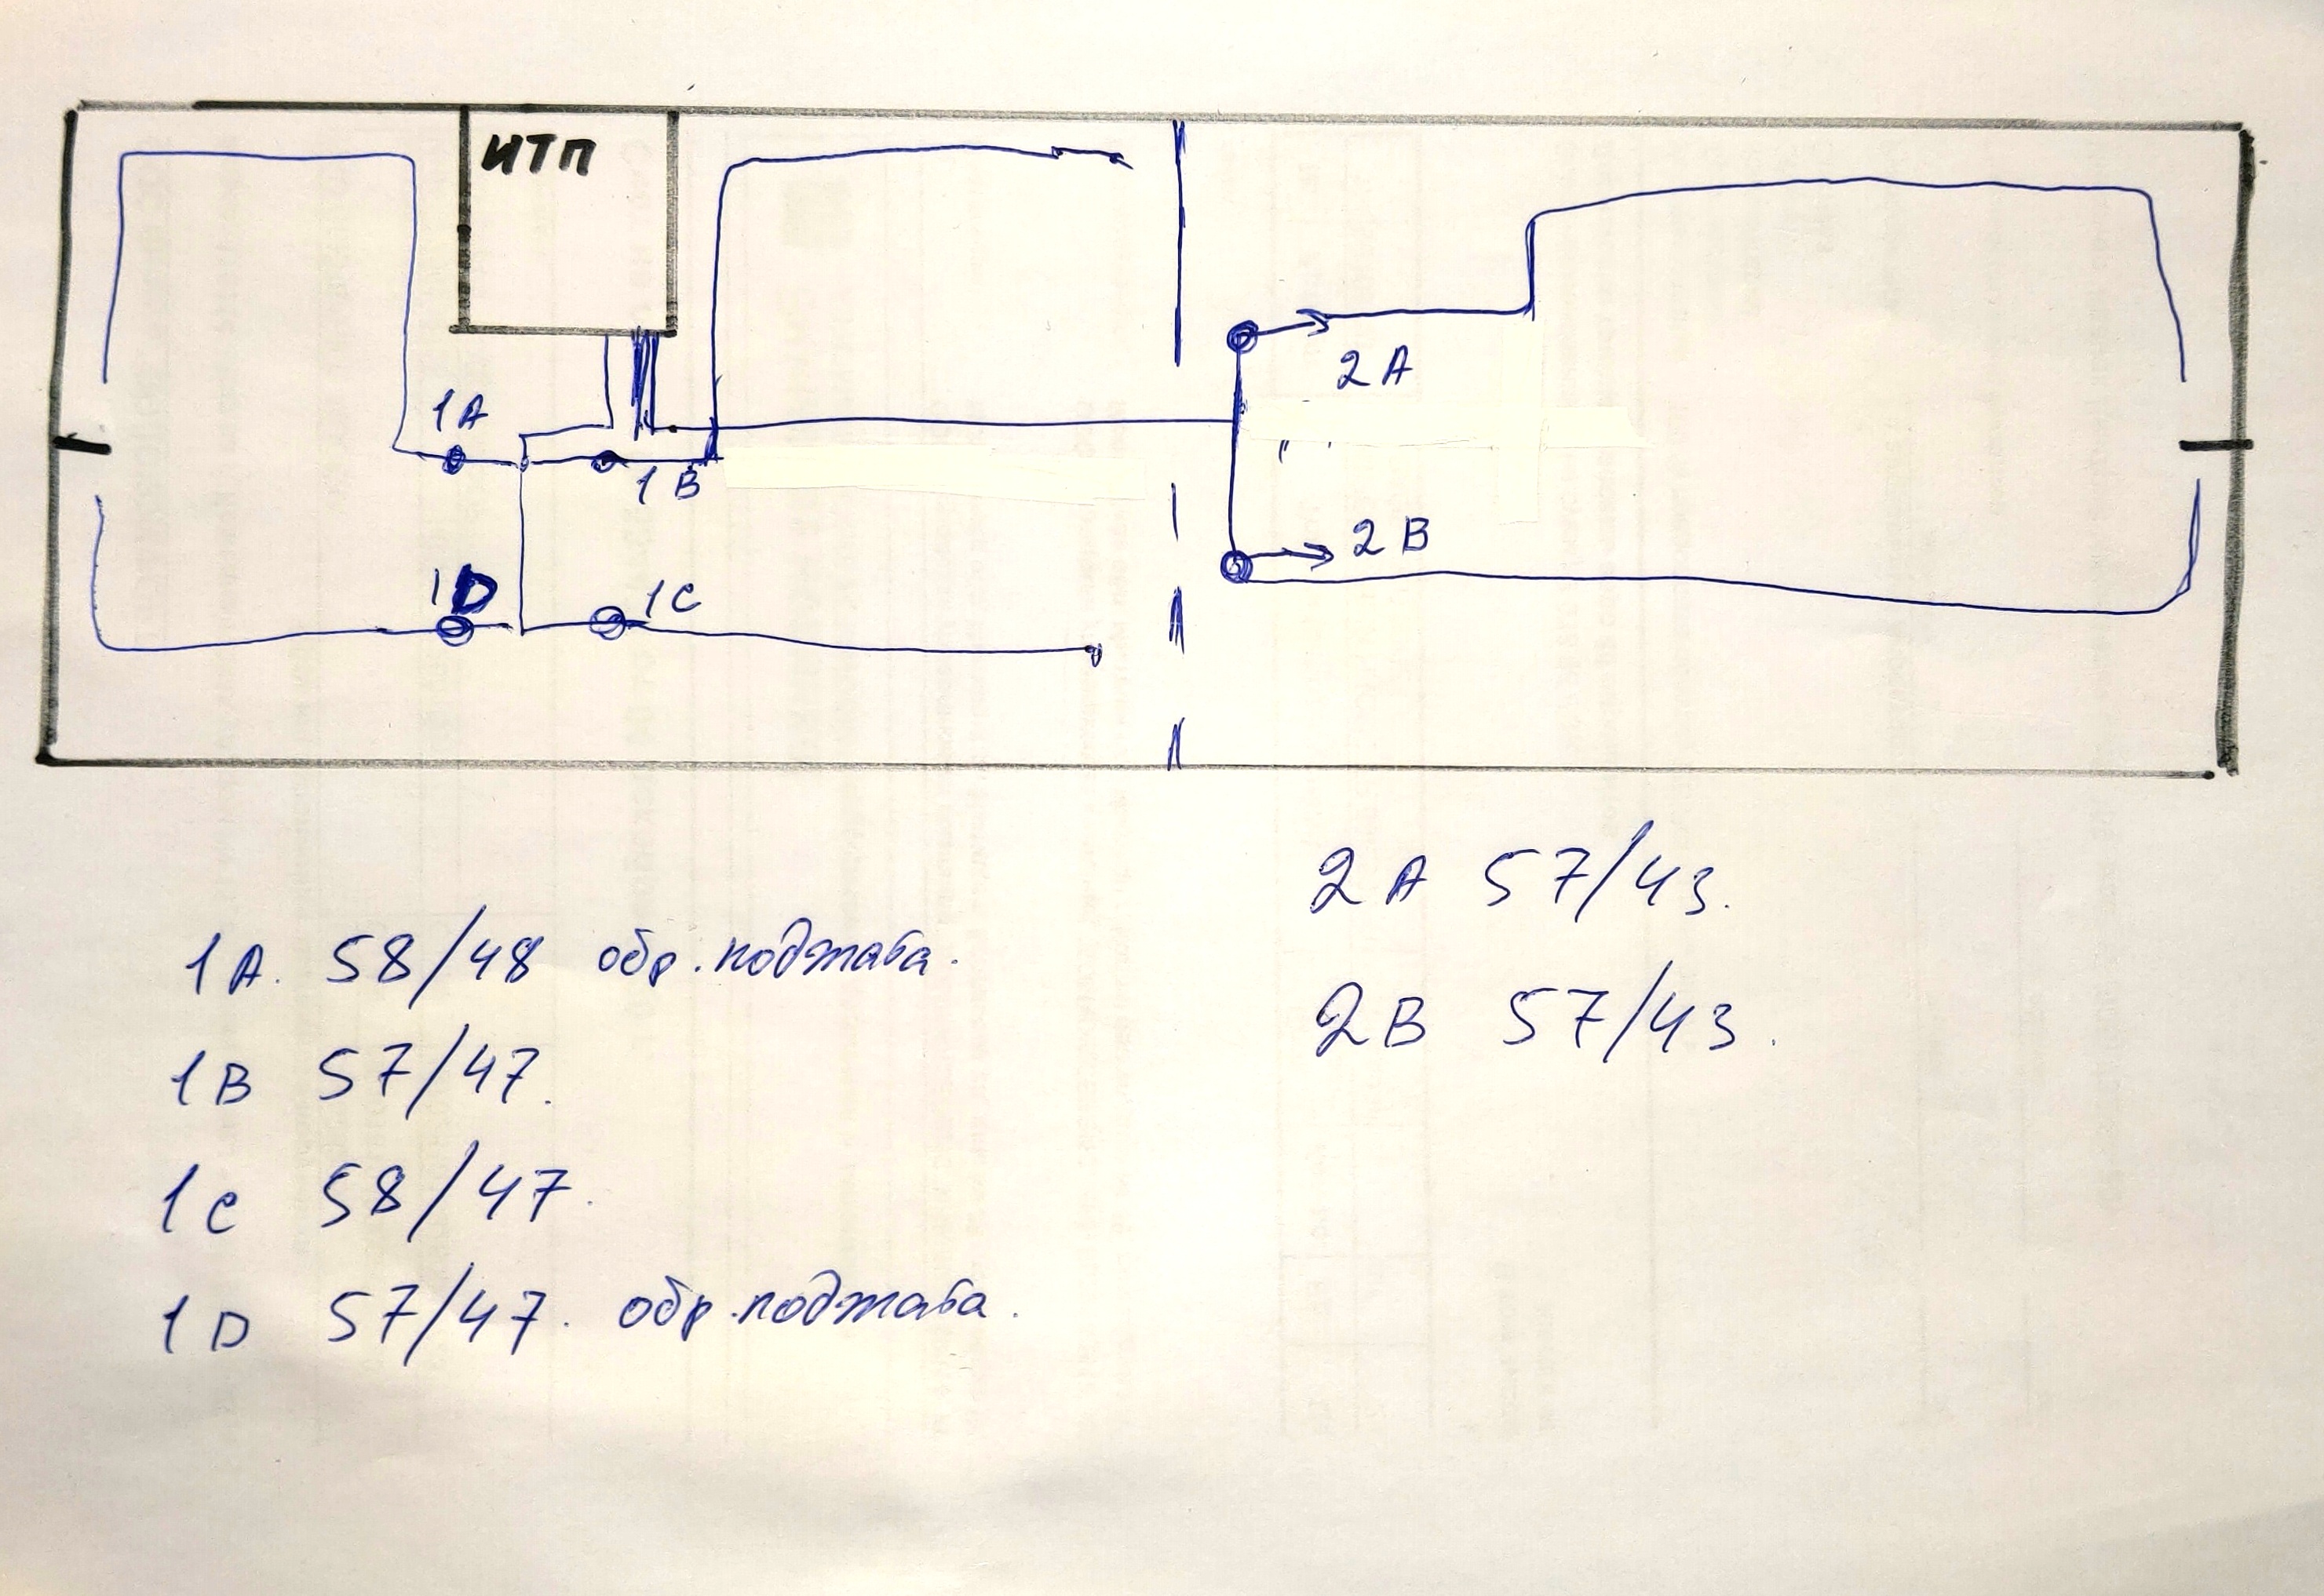 ИТП
1A
1B
2A
2B
1D
1C
2A 57/43.
1A. 58/48 обр. поджата.
2B 57/43.
1B 57/47.
1C 58/47.
1D 57/47. обр. поджата.